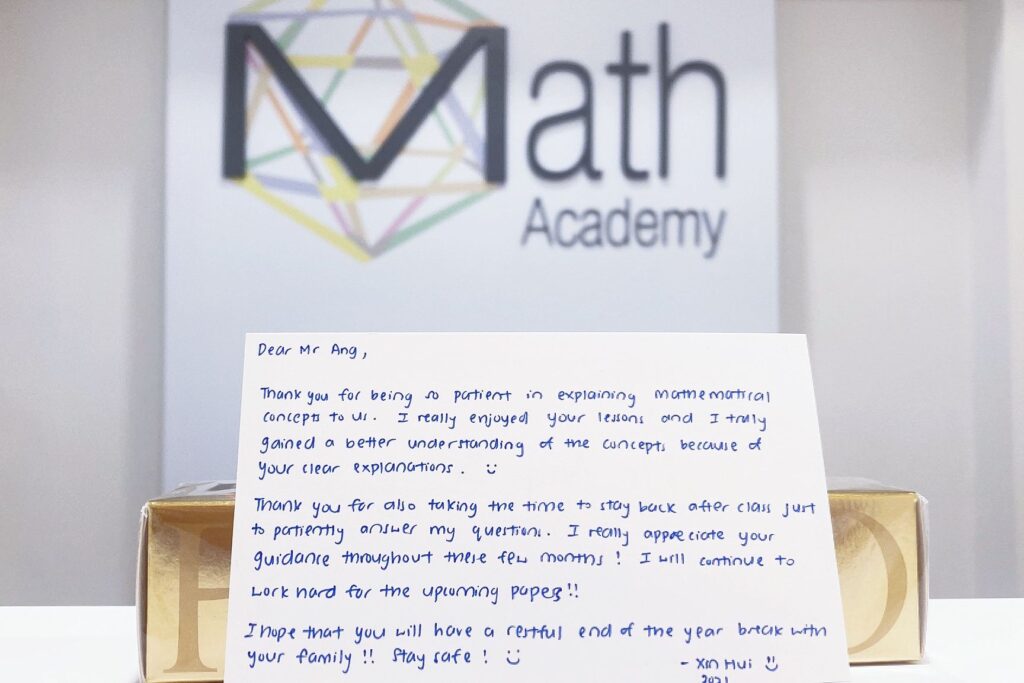 Math
Academy
Dear Mr Ang,
Thank you for being so patient in explaining mathematical
concepts to us. I really enjoyed your lessons and I truly
gained a better understanding of the concepts because of
your clear explanations. :)
Thank you for also taking the time to stay back after class just
to patiently answer my questions. I really appreciate your
guidance throughout these few months! I will continue to
work hard for the upcoming papers!!
I hope that you will have a restful end of the year break with
your family!! Stay safe! :)
- Xin Hui :)
2021